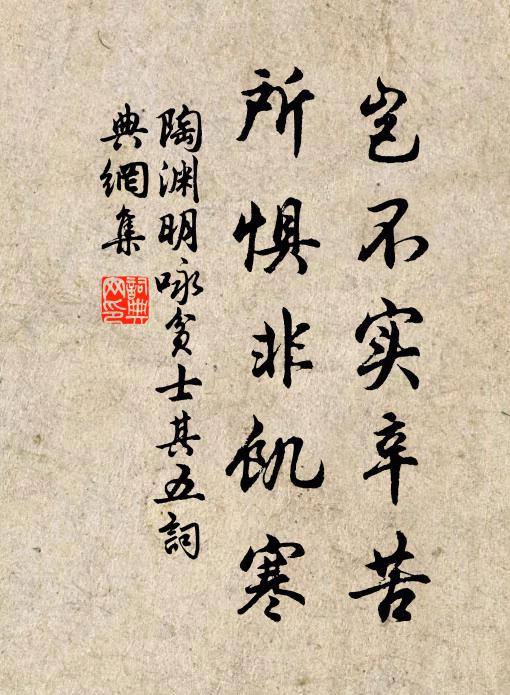 岂不实辛苦
所惧非飢寒
陶渊明咏贫士其五詞
典網集
詞典
网印